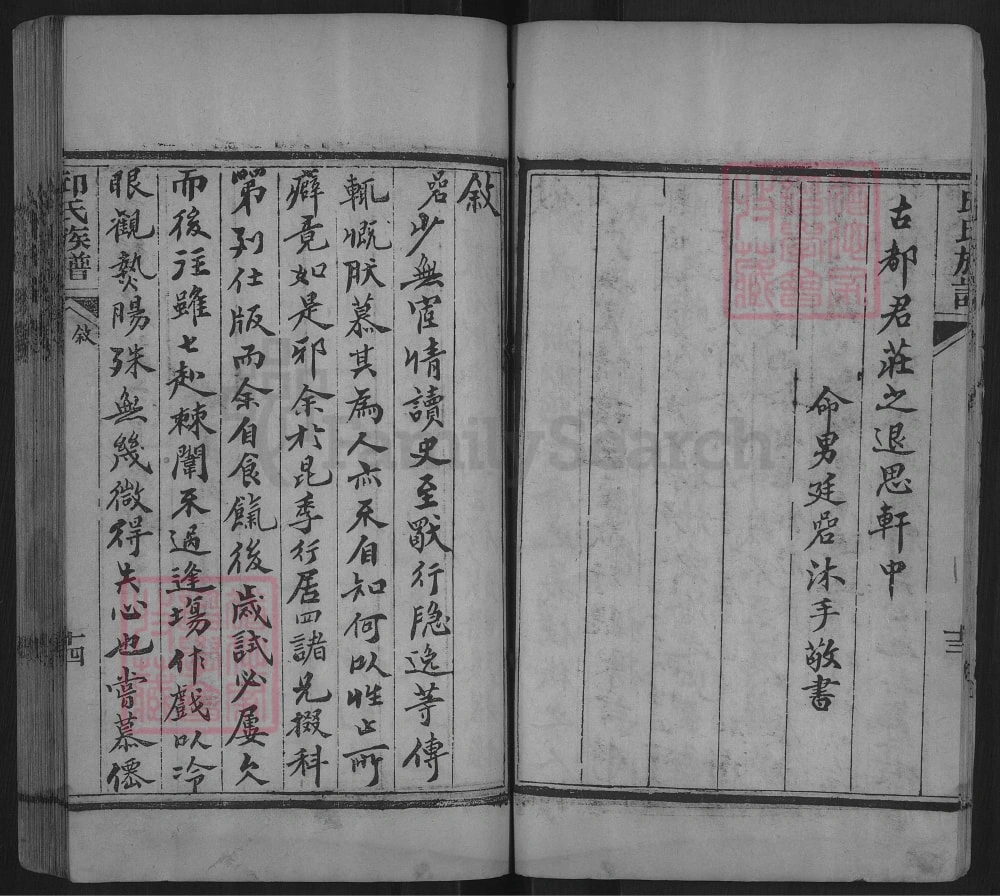 古都君莊之退思軒中
命男廷嵒沐手敬書
邱氏族譜
十三
敘
嵒少無宦情讀史至獨行隐逸等傳
輒慨肰慕其為人亦不自知何以性之所
癖竟如是邪余於昆季行居四諸兄掇科
第列仕版而余自食餼後歲試必屢欠
而後往雖七赴棘闈不過逢塲作戲以冷
眼觀熱腸殊無幾微得失心也嘗慕僊
邱氏族譜
敘
十四
FamilySearch